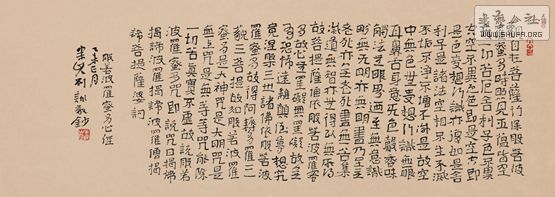 觀自在菩薩行深般若波
羅蜜多時照見五蘊皆空
度一切苦厄舍利子色不異
空空不異色色即是空空即
是色受想行識亦復如是舍
利子是諸法空相不生不滅
不垢不淨不增不減是故空
中無色無受想行識無眼
耳鼻舌身意無色聲香味
觸法無眼界乃至無意識
界無無明亦無無明盡乃至無
老死亦無老死盡無苦集
滅道無智亦無得以無所得
故菩提薩埵依般若波羅蜜
多故心無罣礙無罣礙故無
有恐怖遠離顛倒夢想究
竟涅槃三世諸佛依般若波
羅蜜多故得阿耨多羅三
藐三菩提故知般若波羅
蜜多是大神咒是大明咒是
無上咒是無等等咒能除
一切苦真實不虛故說般若
波羅蜜多咒即說咒曰揭諦
揭諦波羅揭諦波羅僧揭
諦菩提薩婆訶
般若波羅蜜多心經
www.shufa.org